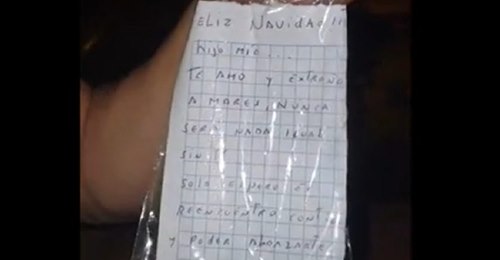 ELIZ NAVIDAD !!!
hijo mio...
TE AMO y EXTRAÑO
A MARES, NUNCA
SERA NADA IGUAL
SIN TI
SOLO ESPERO EL
REENCUENTRO CONT
y PODER ABRAZARTE